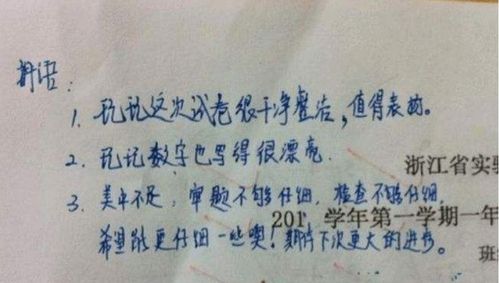 评语:
1. 玩玩这次试卷很干净整洁,值得表扬。
2. 玩玩数字也写得很漂亮.
浙江省实
3. 美中不足,审题不够仔细,检查不够仔细,
201 学年第一学期一年
希望能更仔细一些噢!期待下次更大的进步。
班